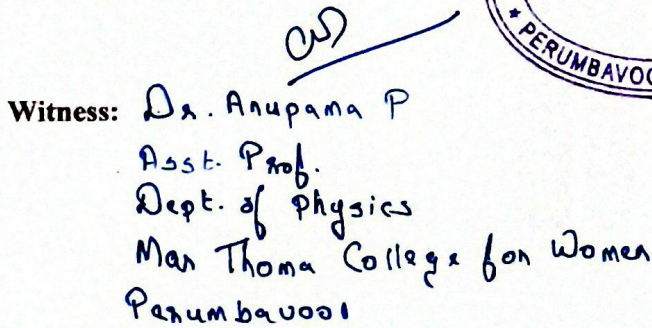 PERUMBAVOO
Witness: Dr. Anupama P
Asst. Prof.
Dept. of Physics
Mar Thoma College for Women
Perumbavoor